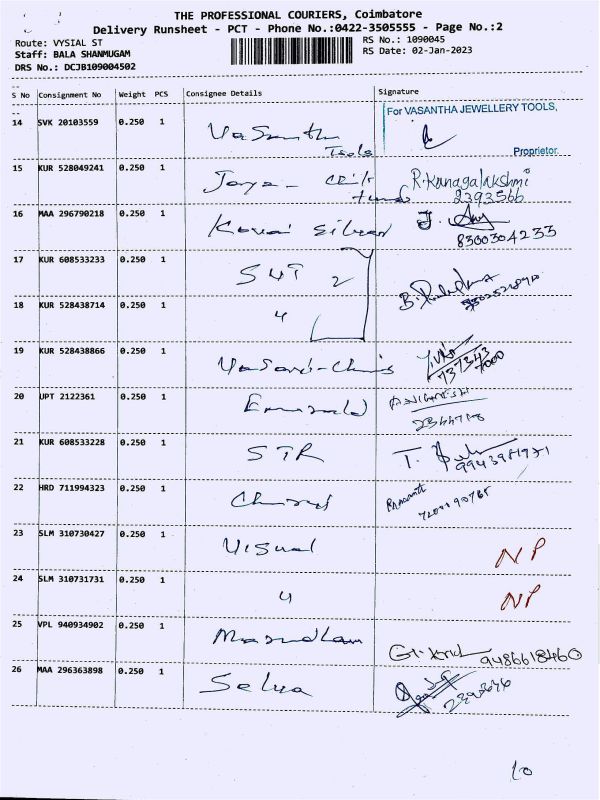 THE PROFESSIONAL COURIERS, Coimbatore
Delivery Runsheet - PCT - Phone No.:0422-3505555 - Page No.:2
Route: VYSIAL ST
RS No.: 1090045
Staff: BALA SHANMUGAM
RS Date: 02-Jan-2023
DRS No.: DCJB109004502
S No Consignment No Weight PCS Consignee Details Signature
14 SVK 20103559 0.250 1 Vasantha Tools
For VASANTHA JEWELLERY TOOLS,
Proprietor.
15 KUR 528049241 0.250 1 Jaya R.Kanagalakshmi
2393566
16 MAA 296790218 0.250 1 Kovai Silver
8300304233
17 KUR 608533233 0.250 1 2
18 KUR 528438714 0.250 1 4
19 KUR 528438866 0.250 1
20 UPT 2122361 0.250 1 Emerald
21 KUR 608533228 0.250 1 STR T.
22 HRD 711994323 0.250 1
23 SLM 310730427 0.250 1 Visual NP
24 SLM 310731731 0.250 1 4 NP
25 VPL 940934902 0.250 1
9486618460
26 MAA 296363898 0.250 1 Selva
10